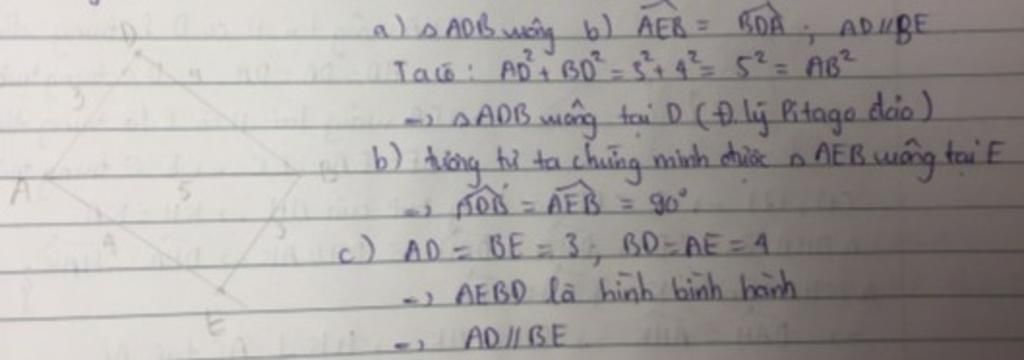 a) △ADB vuông b) \widehat{AEB} = \widehat{BDA} ; AD // BE
Ta có : AD² + BD² = 3² + 4² = 5² = AB²
→ △ADB vuông tại D (Đ. lý Pitago đảo)
b) tương tự ta chứng minh được △AEB vuông tại E
→ \widehat{ADB} = \widehat{AEB} = 90°
c) AD = BE = 3 ; BD = AE = 4
→ AEBD là hình bình hành
→ AD // BE
D
3
4
A
5
B
4
3
E